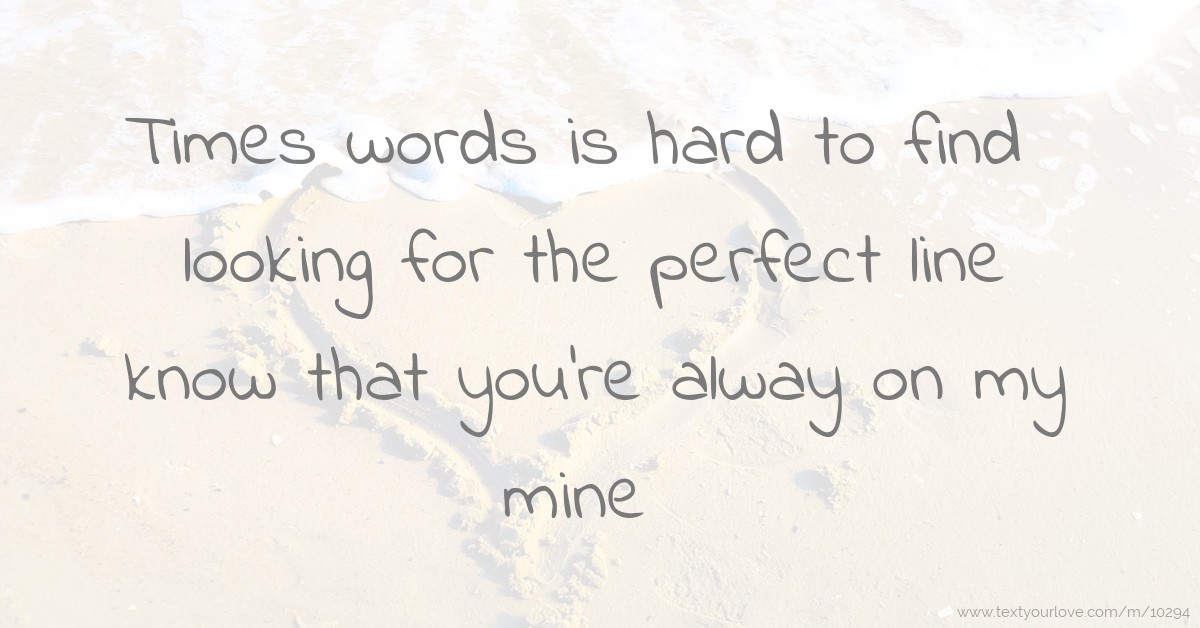 Times words is hard to find
looking for the perfect line
know that you're alway on my
mine
www.textyourlove.com/m/10294